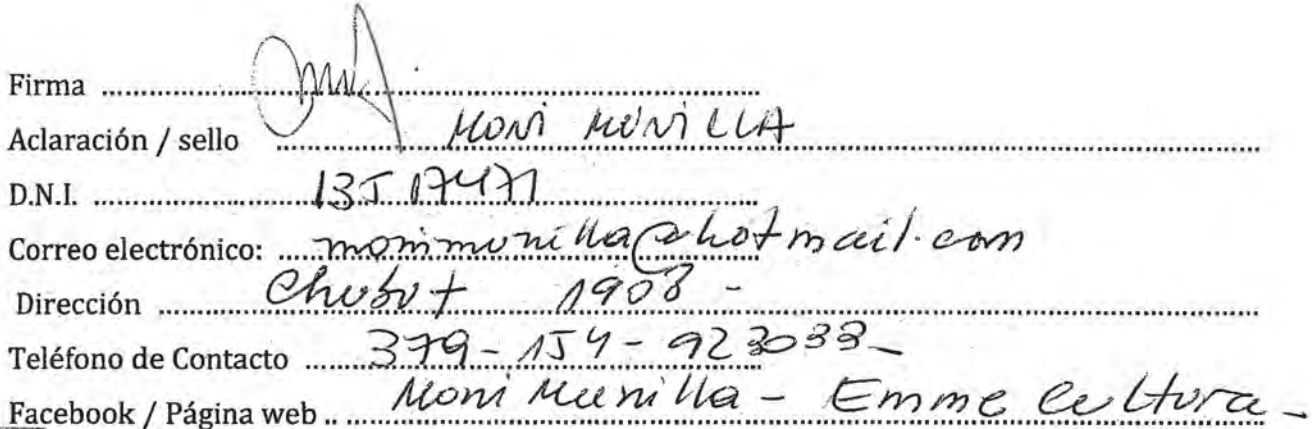 Firma
Aclaración / sello MONI MUNILLA
D.N.I. 13517471
Correo electrónico: monimunilla@hotmail.com
Dirección Chubut 1908 -
Teléfono de Contacto 379 - 154 - 923033 -
Facebook / Página web .. Moni Munilla - Emme Cultura -